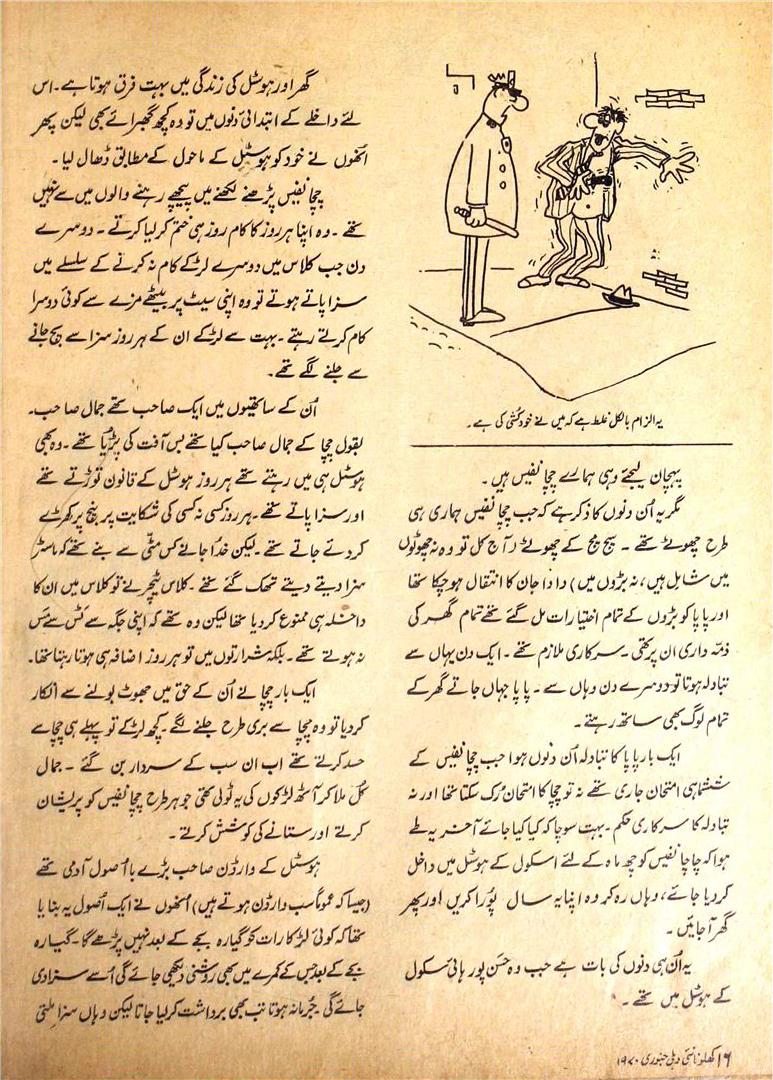 یہ الزام بالکل غلط ہے کہ میں نے خودکشی کی ہے۔
پہچان لیجئے وہی ہمارے چچا نفیس ہیں۔
مگر یہ اُن دنوں کا ذکر ہے کہ جب چچا نفیس ہماری ہی
طرح چھوٹے تھے۔ سچ مچ کے چھوٹے (آج کل تو وہ نہ چھوٹوں
میں شامل ہیں، نہ بڑوں میں) دادا جان کا انتقال ہوچکا تھا
اور پاپا کو بڑوں کے تمام اختیارات مل گئے تھے تمام گھر کی
ذمّہ داری ان پر تھی۔ سرکاری ملازم تھے۔ ایک دن یہاں سے
تبادلہ ہوتا تو دوسرے دن وہاں سے۔ پاپا جہاں جاتے گھر کے
تمام لوگ بھی ساتھ رہتے۔
ایک بار پاپا کا تبادلہ اُن دنوں ہوا جب چچا نفیس کے
ششماہی امتحان جاری تھے نہ تو چچا کا امتحان رُک سکتا تھا اور نہ
تبادلہ کا سرکاری حکم۔ بہت سوچا کہ کیا کیا جائے آخر یہ طے
ہوا کہ چاچا نفیس کو چھ ماہ کے لئے اسکول کے ہوسٹل میں داخل
کر دیا جائے، وہاں رہ کر وہ اپنا یہ سال پُورا کریں اور پھر
گھر آجائیں۔
یہ اُن ہی دنوں کی بات ہے جب وہ حَسن پور ہائی سکول
کے ہوسٹل میں تھے۔
گھر اور ہوسٹل کی زندگی میں بہت فرق ہوتا ہے۔ اس
لئے داخلے کے ابتدائی دنوں میں تو وہ کچھ گھبرائے بھی لیکن پھر
اُنھوں نے خود کو ہوسٹل کے ماحول کے مطابق ڈھال لیا۔
چچا نفیس پڑھنے لکھنے میں پیچھے رہنے والوں میں سے نہیں
تھے۔ وہ اپنا ہر روز کا کام روز ہی ختم کرلیا کرتے۔ دوسرے
دن جب کلاس میں دوسرے لڑکے کام نہ کرنے کے سلسلے میں
سزا پاتے ہوتے تو وہ اپنی سیٹ پر بیٹھے مزے سے کوئی دوسرا
کام کرتے رہتے۔ بہت سے لڑکے ان کے ہر روز سزا سے بچ جانے
سے جلنے لگے تھے۔
اُن کے ساتھیوں میں ایک صاحب تھے جمال صاحب۔
بقول چچا کے جمال صاحب کیا تھے بس آفت کی پُڑیا تھے۔ وہ بھی
ہوسٹل ہی میں رہتے تھے ہر روز ہوسٹل کے قانون توڑتے تھے
اور سزا پاتے تھے۔ ہر روز کسی نہ کسی کی شکایت پر بنچ پر کھڑے
کر دئے جاتے تھے۔ لیکن خدا جانے کس مٹی سے بنے تھے کہ ماسٹر
سزا دیتے دیتے تھک گئے تھے۔ کلاس ٹیچر نے تو کلاس میں ان کا
داخلہ ہی ممنوع کر دیا تھا لیکن وہ تھے کہ اپنی جگہ سے ٹس سے مَس
نہ ہوتے تھے۔ بلکہ شرارتوں میں تو ہر روز اضافہ ہی ہوتا رہتا تھا۔
ایک بار چچا نے اُن کے حق میں جھوٹ بولنے سے انکار
کر دیا تو وہ چچا سے بری طرح جلنے لگے۔ کچھ لڑکے تو پہلے ہی چچا سے
حسد کرتے تھے اب ان سب کے سردار بن گئے۔ جمال
کُل ملا کر آٹھ لڑکوں کی یہ ٹولی تھی جو ہر طرح چچا نفیس کو پریشان
کرتے اور ستانے کی کوشش کرتے۔
ہوسٹل کے وارڈن صاحب بڑے بااُصول آدمی تھے
(جیسا کہ عموماً سب وارڈن ہوتے ہیں) اُنھوں نے ایک اُصول یہ بنا یا
تھا کہ کوئی لڑکا رات کو گیارہ بجے کے بعد نہیں پڑھے گا۔ گیارہ
بجے کے بعد جس کے کمرے میں بھی روشنی دیکھی جائے گی اُسے سزا دی
جائے گی۔ جُرمانہ ہوتا تب بھی برداشت کرلیا جاتا لیکن وہاں سزا ملتی
۱۶ کھلونا نئی دہلی جنوری ۱۹۷۰